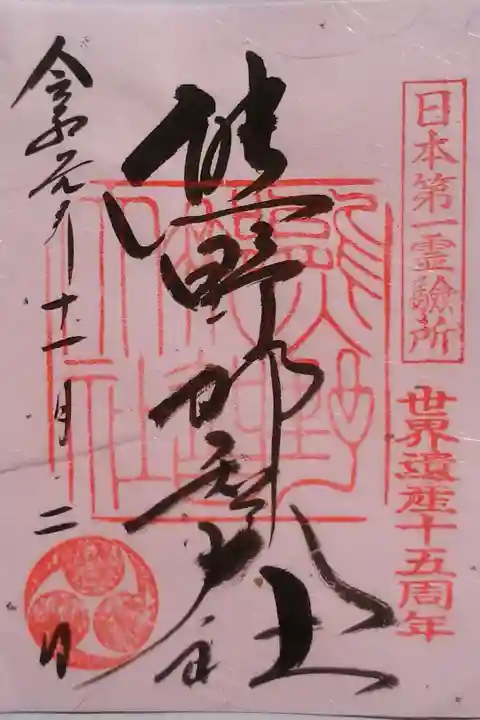 日本第一霊験所
世界遺産十五周年
熊野那智大社
令和元年十一月二日